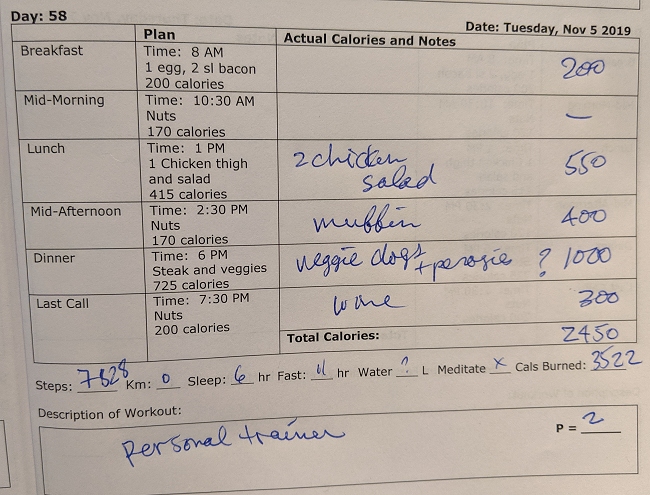 Day: 58
Date: Tuesday, Nov 5 2019
Plan
Actual Calories and Notes
Breakfast
Time: 8 AM
1 egg, 2 sl bacon
200 calories
200
Mid-Morning
Time: 10:30 AM
Nuts
170 calories
—
Lunch
Time: 1 PM
1 Chicken thigh
and salad
415 calories
2 chicken
salad
550
Mid-Afternoon
Time: 2:30 PM
Nuts
170 calories
muffin
400
Dinner
Time: 6 PM
Steak and veggies
725 calories
veggie dogs + perogies ? 1000
Last Call
Time: 7:30 PM
Nuts
200 calories
wine
300
Total Calories:
2450
Steps: 7828 Km: 0 Sleep: 6 hr Fast: 11 hr Water ? L Meditate x Cals Burned: 3522
Description of Workout:
personal trainer
P = 2